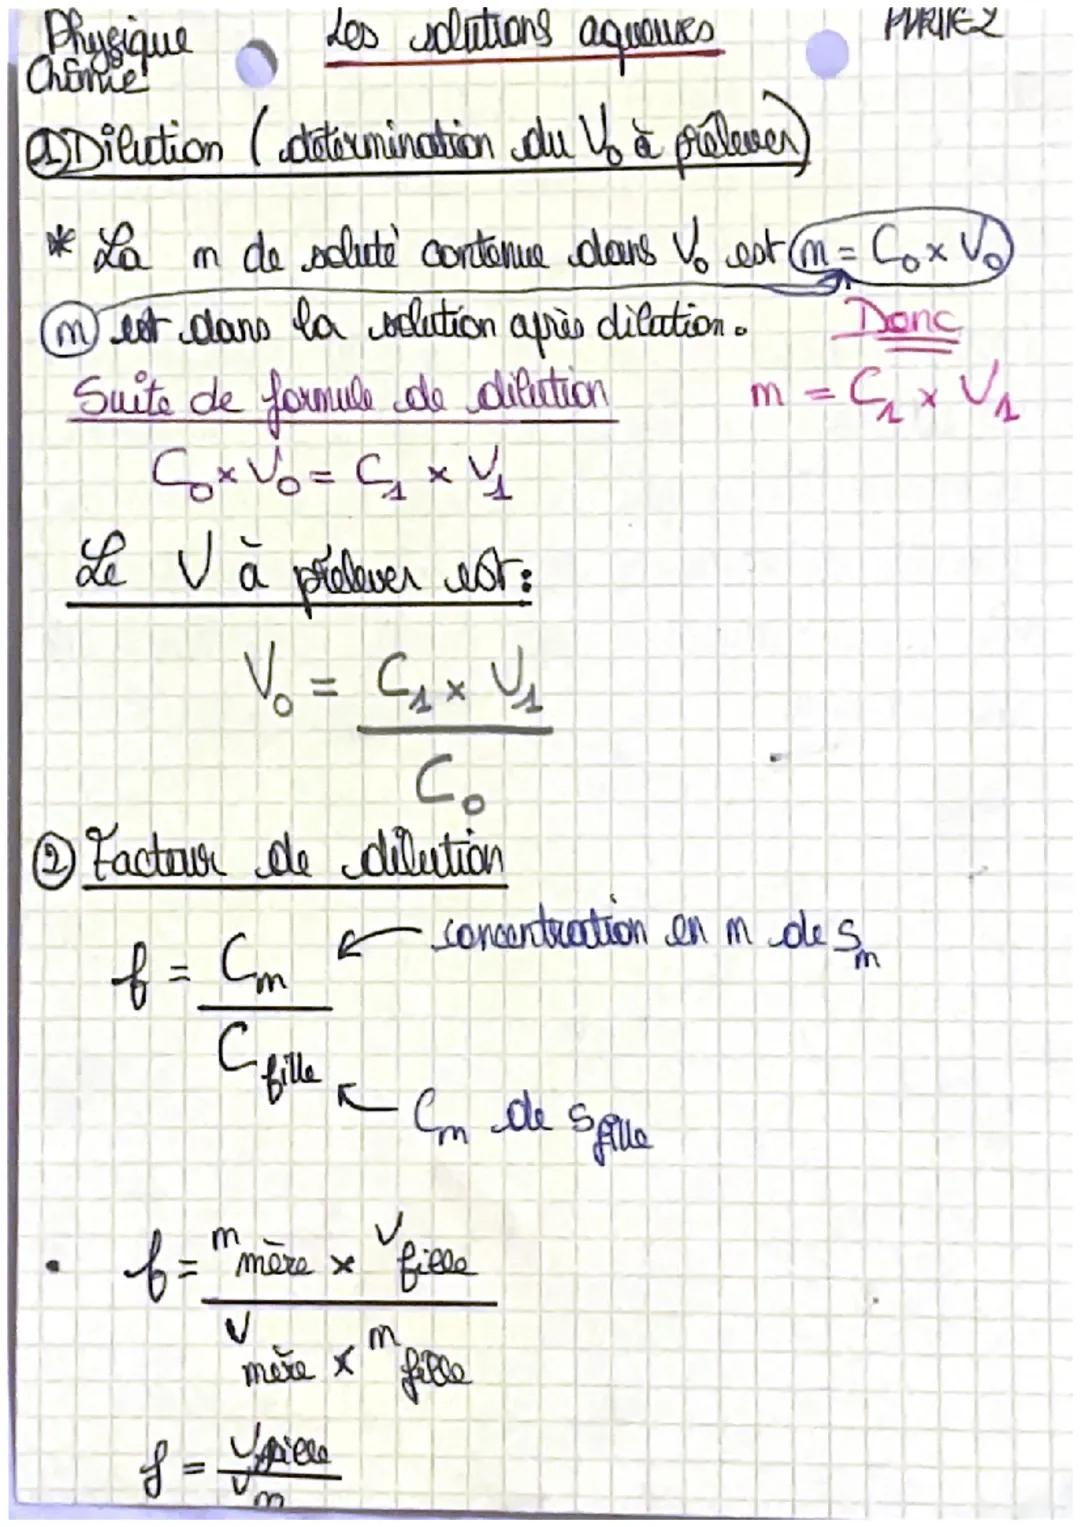 Physique Les solutions aqueuses PARTIE 2
Chimie
① Dilution (détermination du V₀ à prélever)
* La m de soluté contenue dans V₀ est m = C₀ x V₀
m est dans la solution après dilution. Donc
Suite de formule de dilution m = C₁ x V₁
C₀ x V₀ = C₁ x V₁
Le V à prélever est :
V₀ = C₁ x V₁
C₀
② Facteur de dilution
f = Cm ← concentration en m de Sm
C fille
← Cm de S fille
• f = m mère x V fille
V mère x m fille
f = V fille
Vm